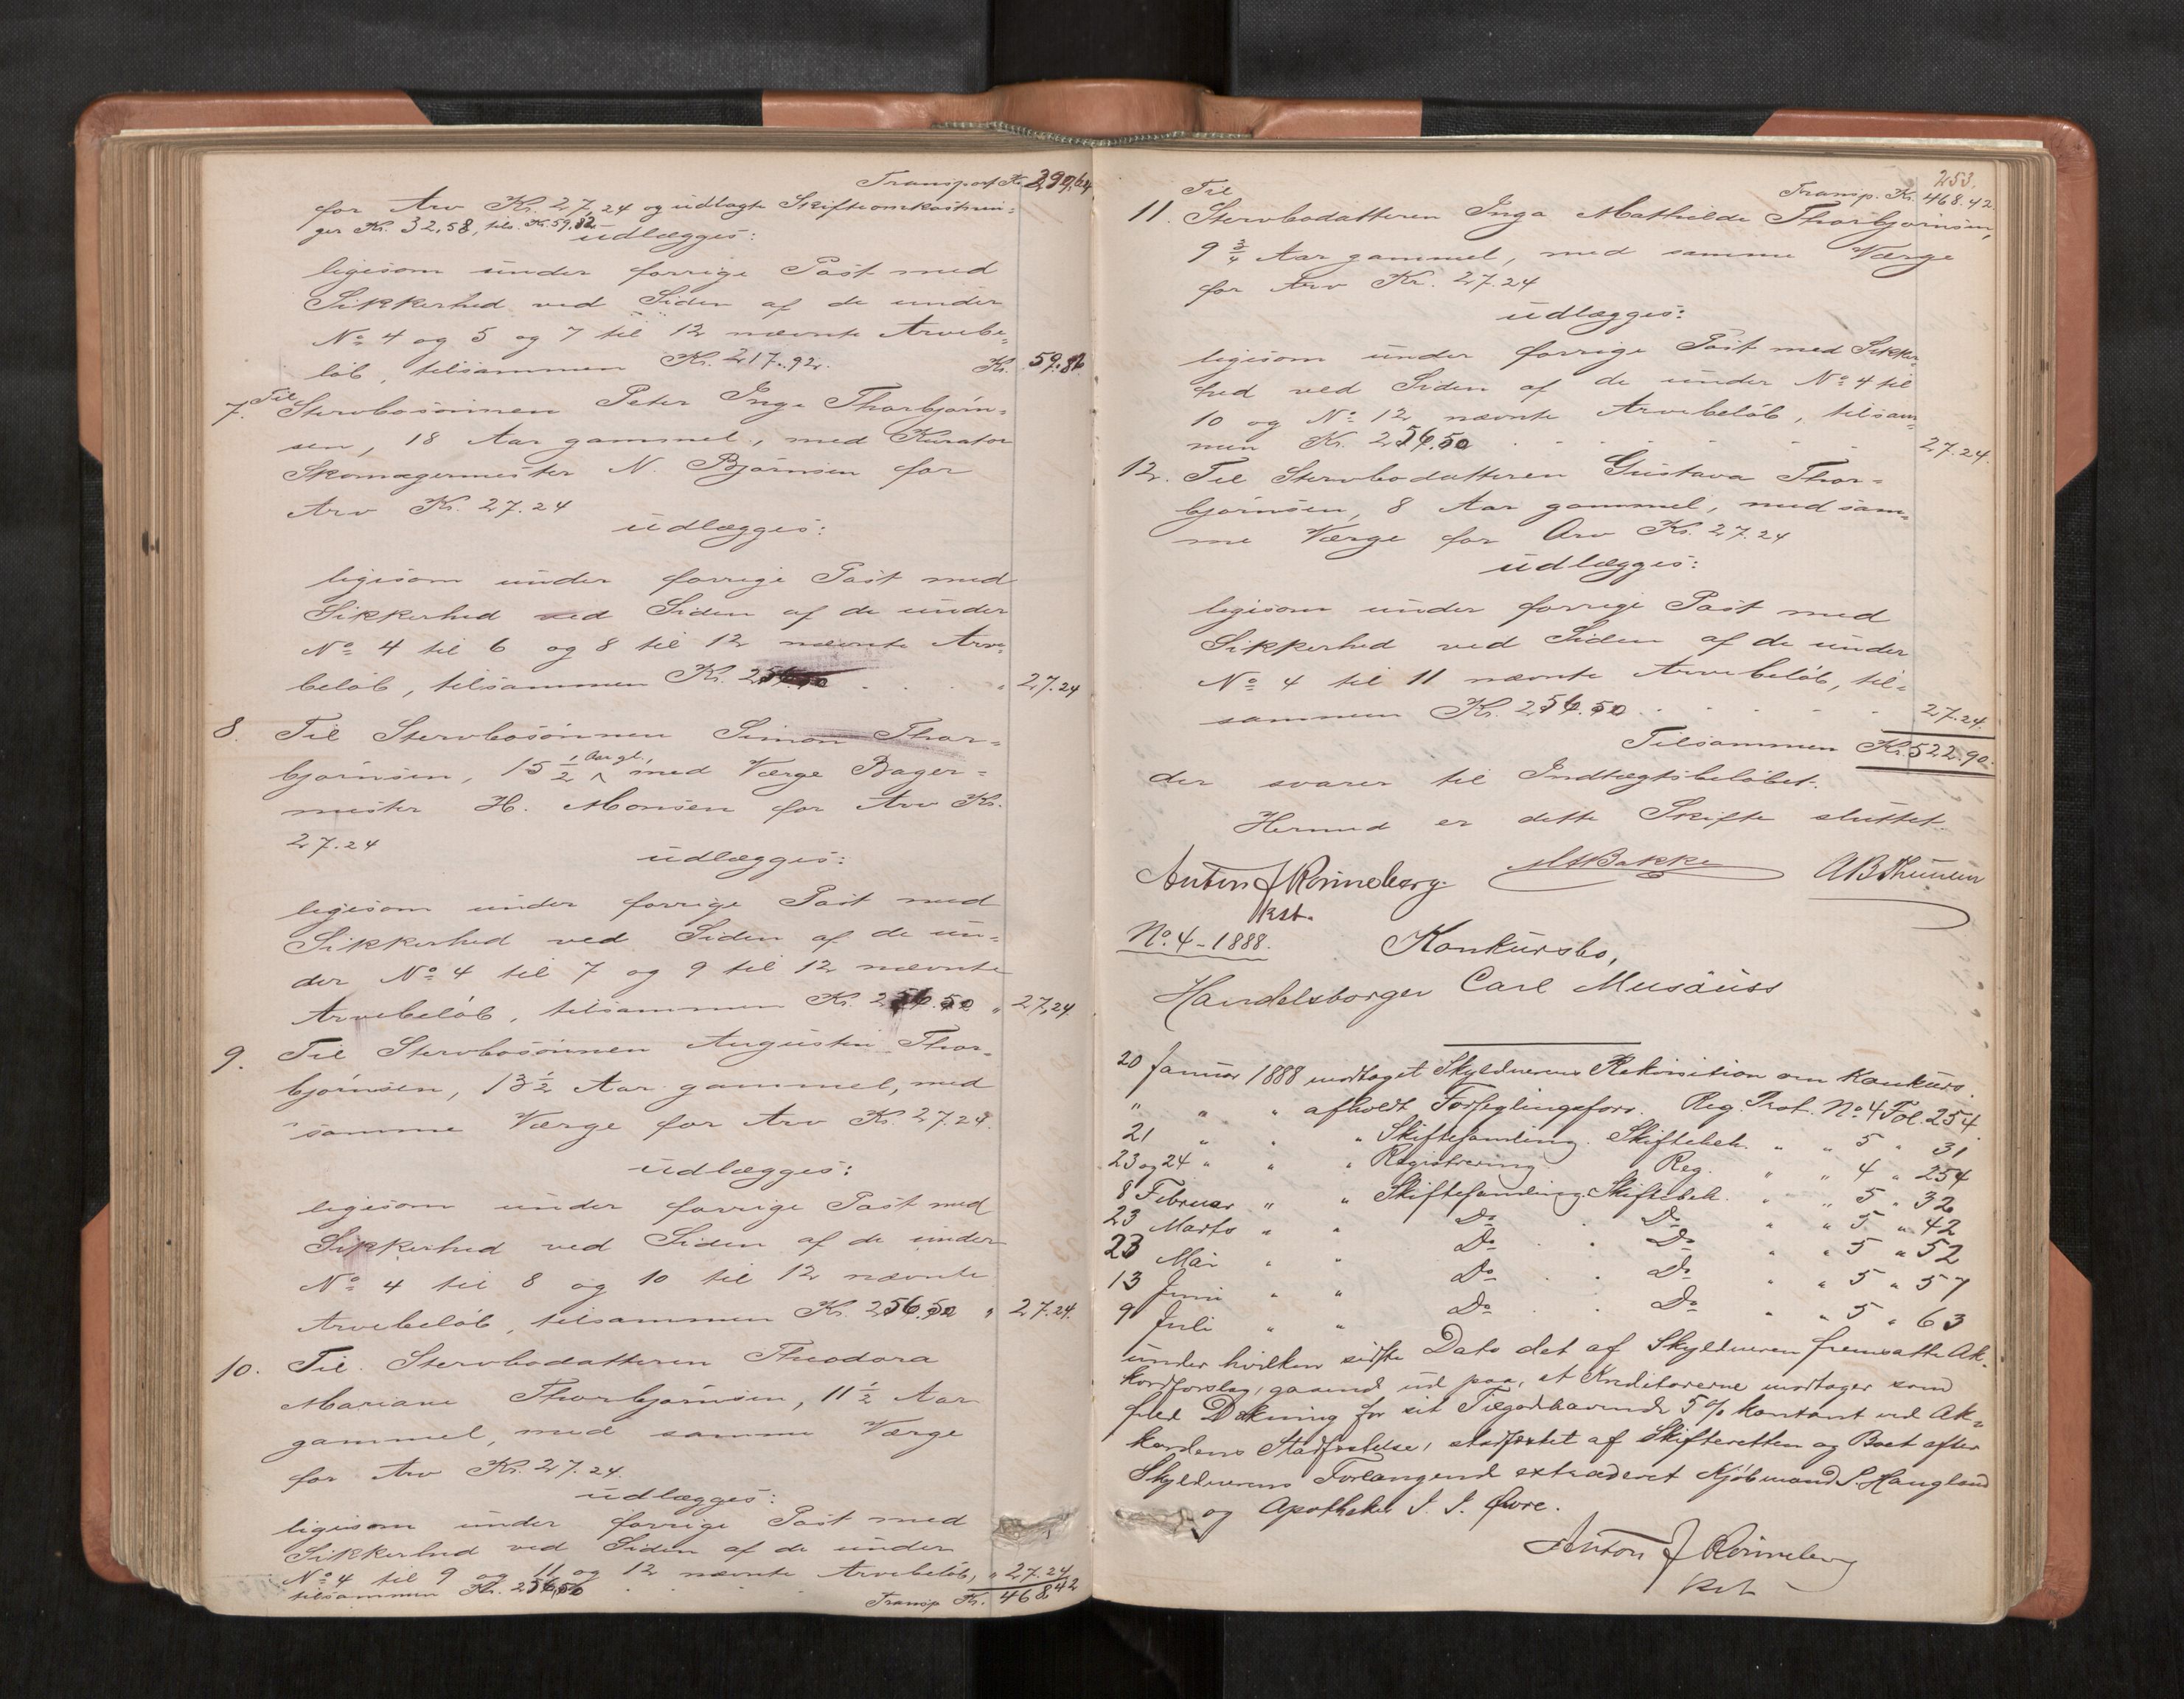 Transport Kr. 299,64
for Arv Kr. 27,24 og udlagte Skifteomkostnin-
ger Kr. 32,58, tils. Kr. 59,82
udlægges:
ligesom under forrige Post med
Sikkerhed ved Siden af de under
No 4 og 5 og 7 til 12 nævnte Arvebe-
løb, tilsammen Kr. 217.92. Kr. 59.82
7. Til Stervbosønnen Peter Inge Thorbjørn-
sen, 18 Aar gammel, med Kurator
Skomagermester N. Bjørnsen for
Arv Kr. 27.24
udlægges:
ligesom under forrige Post med
Sikkerhed ved Siden af de under
No 4 til 6 og 8 til 12 nævnte Arve-
beløb, tilsammen Kr. 256.50 . . . . " 27.24
8. Til Stervbosønnen Simon Thor-
bjørnsen, 15 1/2 Aar gl., med Værge Bager-
mester H. Monsen for Arv Kr.
27.24
udlægges:
ligesom under forrige Post med
Sikkerhed ved Siden af de un-
der No 4 til 7 og 9 til 12 nævnte
Arvebeløb, tilsammen Kr. 256.50 " 27,24
9. Til Stervbosønnen Augustin Thor-
bjørnsen, 13 1/2 Aar gammel, med
samme Værge for Arv Kr. 27.24.
udlægges:
ligesom under forrige Post med
Sikkerhed ved Siden af de under
No 4 til 8 og 10 til 12 nævnte
Arvebeløb, tilsammen Kr 256.50 " 27.24.
10. Til Stervbodatteren Theodora
Mariane Thorbjørnsen, 11 1/2 Aar
gammel, med samme Værge
for Arv Kr. 27.24.
udlægges:
ligesom under forrige Post med
Sikkerhed ved Siden af de under
No 4 til 9 og 11 og 12 nævnte Arvebeløb, " 27.24
tilsammen Kr. 256,50
Transp Kr. 468,42
253.
Transp. Kr. 468.42
11. Til Stervbodatteren Inga Mathilde Thorbjørnsen,
9 3/4 Aar gammel, med samme Værge
for Arv Kr. 27.24
udlægges:
ligesom under forrige Post med Sikker-
hed ved Siden af de under No 4 til
10 og No 12 nævnte Arvebeløb, tilsam-
men Kr. 256.50 . . . . . . 27.24.
12. Til Stervbodatteren Gustava Thor-
bjørnsen, 8 Aar gammel, med sam-
me Værge for Arv Kr. 27.24
udlægges:
ligesom under forrige Post med
Sikkerhed ved Siden af de under
No 4 til 11 nævnte Arvebeløb, til-
sammen Kr. 256.50 . . . . . 27.24.
Tilsammen Kr. 522.90.
der svarer til Indtægtsbeløbet.
Hermed er dette Skifte sluttet.
Anton J Rønneberg. M Bakke
kst.
No. 4 - 1888. Konkursbo,
Handelsborger Carl Musäuss
20 Januar 1888 modtaget Skyldnerens Rekvisition om Konkurs.
" " " afholdt Forseglingsforr. Reg. Prot. No. 4 Fol. 254.
21 " " " Skiftesamling. Skiftebeh. " " 5 " 31
23 og 24 " " " Registrering. Reg. " " 4 " 254
8 Februar " " Skiftesamling. Skiftebeh. " " 5 " 32
23 Marts " " Do . Do " " 5 " 42
23 Mai " " Do . Do " " 5 " 52
13 Juni " " Do . Do " " 5 " 57
9 Juli " " Do . Do " " 5 " 63
under hvilken sidste Dato det af Skyldneren fremsatte Ak-
kordforslag, gaaend ud paa, at Kreditorerne modtager som
fuld Dækning for sit Tilgodehavende 5% kontant ved Ak-
kordens Stadfæstelse, stadfæstet af Skifteretten og Boet efter
Skyldnerens Forlangend extraderet Kjøbmand S. Haugland
og Apotheker I. I. Øwre.
Anton J Rønneberg
kst